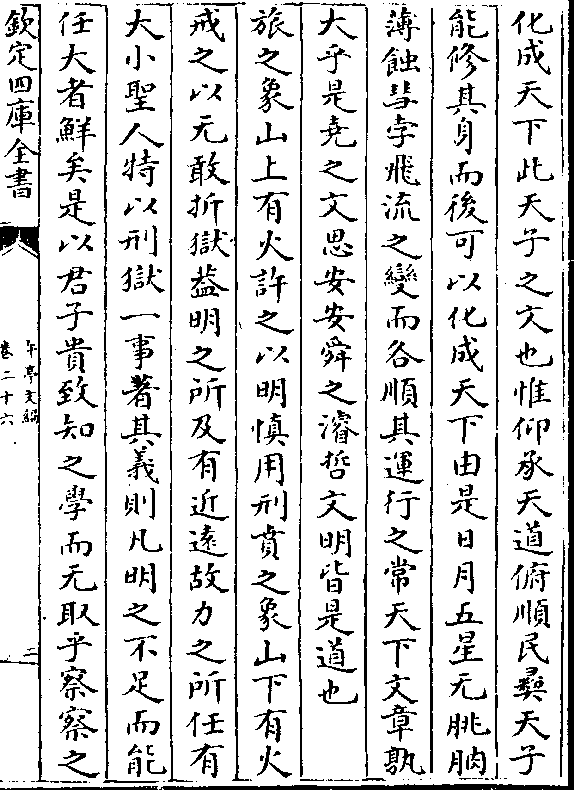 化成天下此天子之文也惟仰承天道俯順民彝天子
能修其身而後可以化成天下由是日月五星无朓朒
薄蝕彗孛飛流之變而各順其運行之常天下文章孰
大乎是堯之文思安安舜之濬哲文明皆是道也
旅之象山上有火許之以明慎用刑賁之象山下有火
戒之以无敢折獄葢明之所及有近遠故力之所任有
大小聖人特以刑獄一事著其義則凡明之不足而能
任大者鮮矣是以君子貴致知之學而无取乎察察之
欽定四庫全書
午亭文編
卷二十六
三